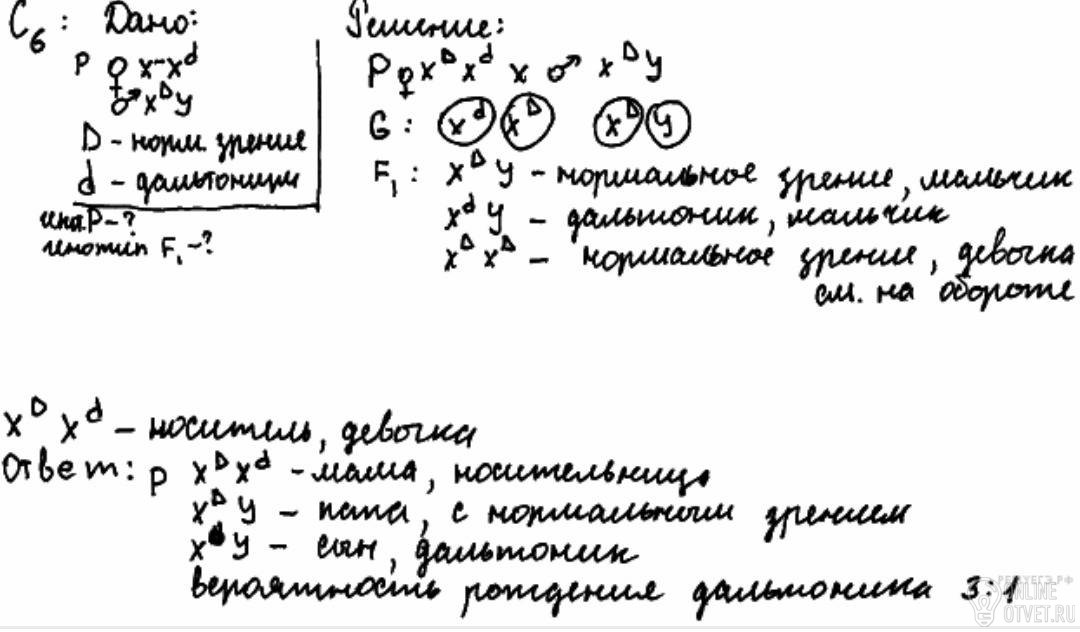 С6: Дано:
P ♀ x⁻xᵈ
♂ xᴰy
D - норм. зрение
d - дальтонизм
P - ?
генотип F₁ - ?
Решение:
P ♀ xᴰxᵈ x ♂ xᴰy
G: xᵈ xᴰ xᴰ y
F₁: xᴰy - нормальное зрение, мальчик
xᵈy - дальтоник, мальчик
xᴰxᴰ - нормальное зрение, девочка
см. на обороте
xᴰxᵈ - носитель, девочка
Ответ: P xᴰxᵈ - мама, носительница
xᴰy - папа, с нормальным зрением
xᵈy - сын, дальтоник
вероятность рождения дальтоника 3:1
ONLINE
OTVET.RU